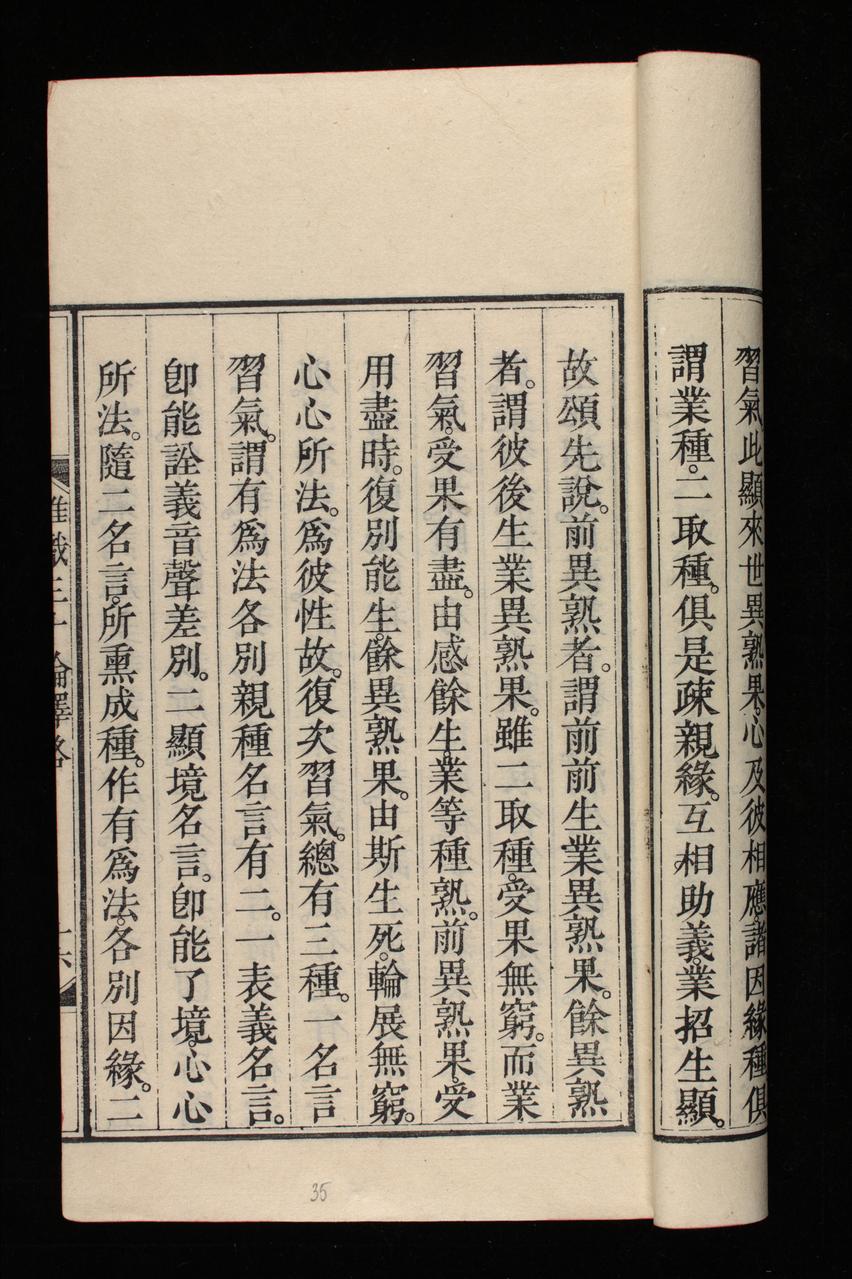 習氣此顯來世異熟果心及彼相應諸因緣種俱
謂業種。二取種。俱是疎親緣。互相助義。業招生顯。
故頌先說。前異熟者。謂前前生業異熟果。餘異熟
者。謂彼後生業異熟果。雖二取種。受果無窮。而業
習氣。受果有盡。由感餘生。業等種熟。前異熟果。受
用盡時。復別能生。餘異熟果。由斯生死。輪展無窮。
心心所法。爲彼性故。復次習氣。總有三種。一名言
習氣。謂有爲法各別親種名言有二。一表義名言。
卽能詮義音聲差別。二顯境名言。卽能了境。心心
所法。隨二名言。所熏成種。作有爲法。各別因緣。二
35